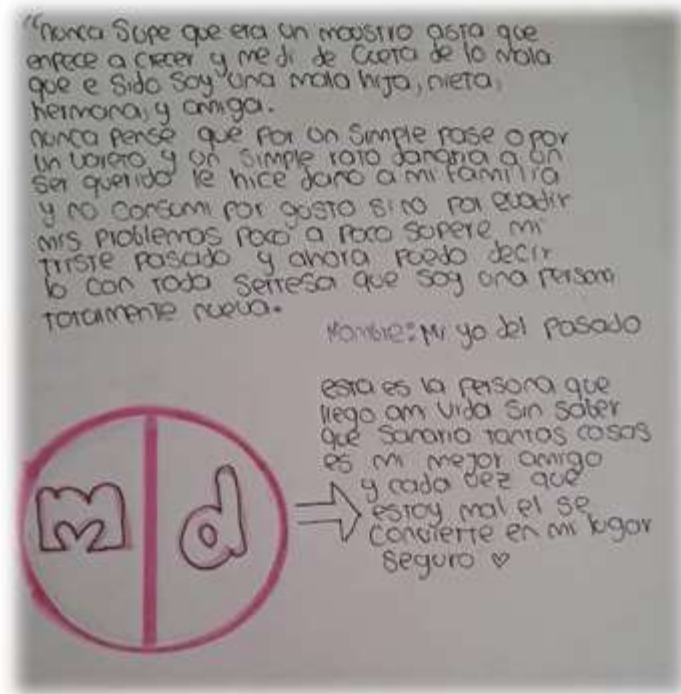 "nunca Supe que era un moustro asta que
enpece a crecer y me di de cueta de lo mala
que e sido soy una mala hija, nieta,
hermana, y amiga.
nunca pense que por un simple pase o por
un varero y un simple rato danaria a un
ser querido le hice dano a mi familia
y no consumi por gusto sino por evadir
mis problemas poco a poco supere mi
triste pasado y ahora puedo decir
lo con toda serresa que soy una persona
totalmente nueva.
Nombre: Mi yo del pasado
esta es la persona que
llego am vida sin saber
que sanaria tantas cosas
es mi mejor amigo
y cada vez que
estoy mal el se
convierte en mi lugar
seguro ♡
m d